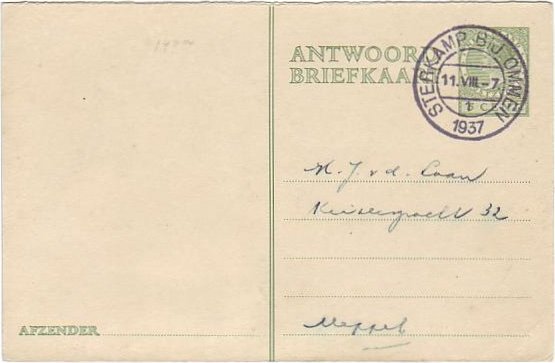 ANTWOORD
BRIEFKAART
STERKAMP BIJ OMMEN
11.VIII-7
1937
5 C
H. J. v. d. Laan
Keizersgracht 32
Meppel
AFZENDER